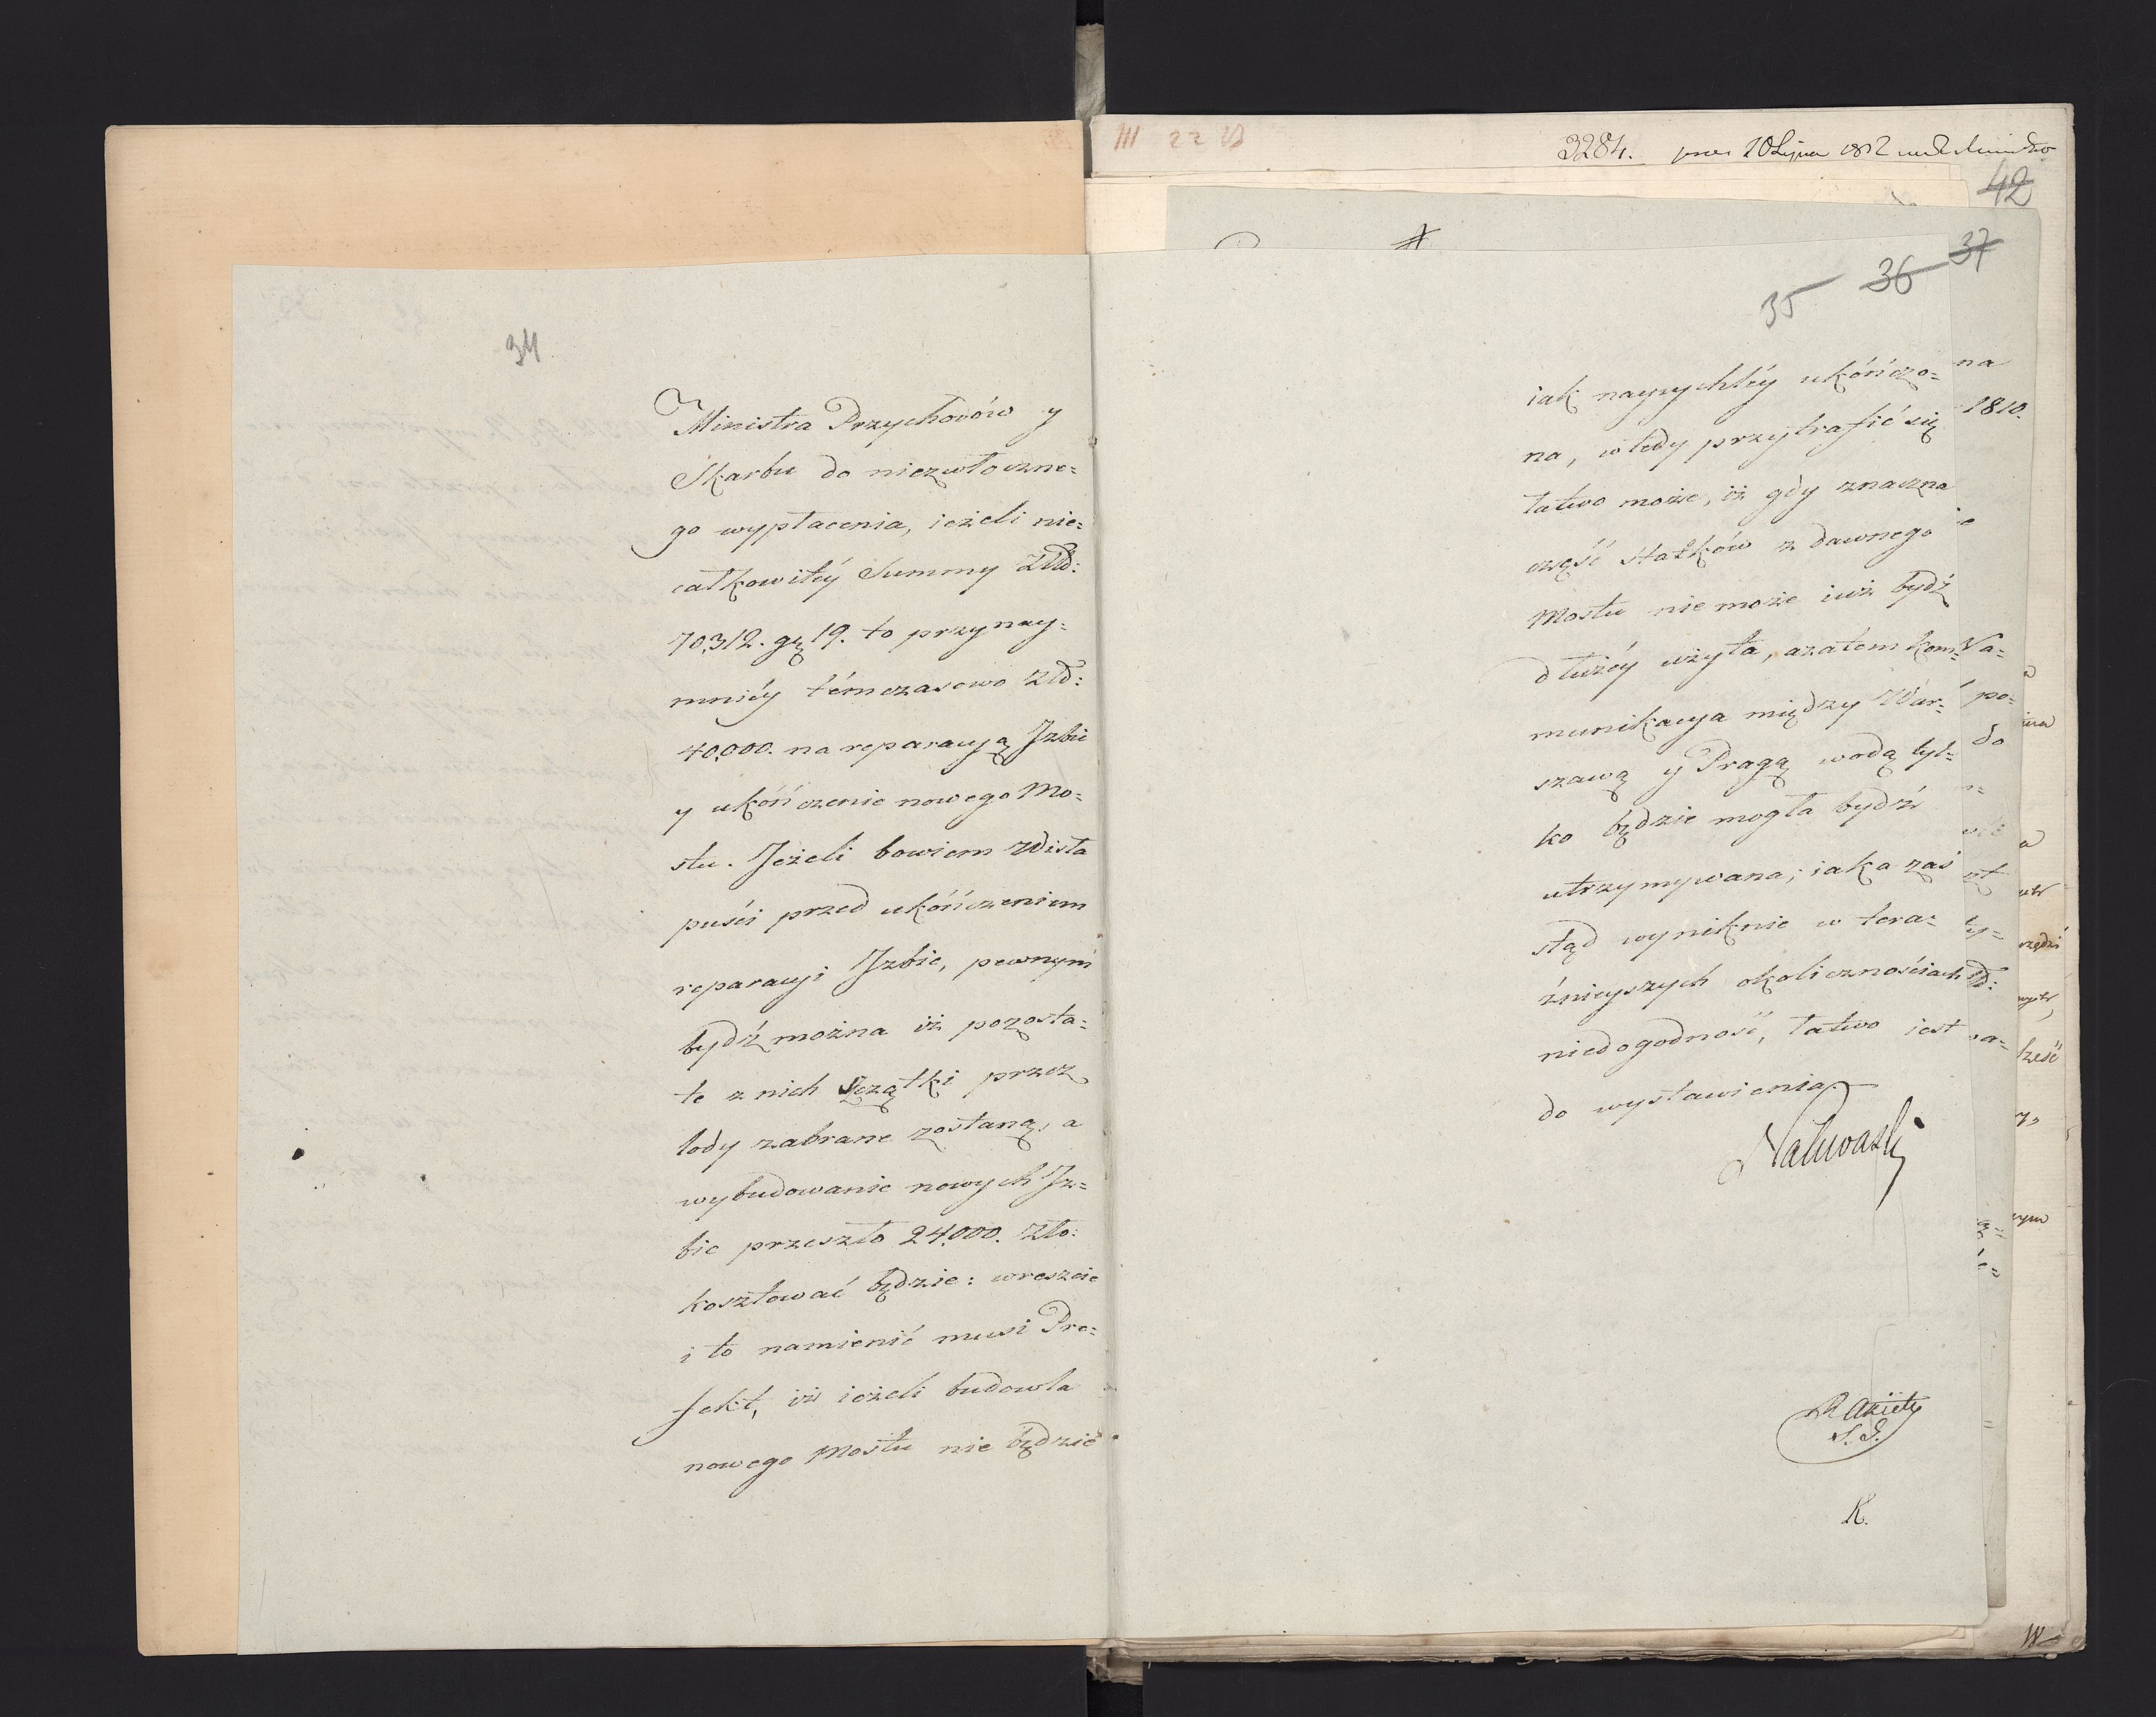 34
Ministra Przychodów y
Skarbu do niezwłoczne=
go wypłacenia, ieżeli nie=
całkowitéy Summy Złd:
70,312. gr 19. to przynay=
mniéy témczasowo złd:
40,000. na reparacyą Jzbic
y ukończenie nowego Mo=
stu. Jeżeli bowiem Wisła
puści przed ukończeniem
reparacyi Jzbic, pewnym
bydź można iż pozosta=
łe z nich Szczątki przez
lody zabrane zostaną, a
wybudowanie nowych Jz=
bic przeszło 24,000. Zło:
kosztować będzie: wreszcie
i to namienić musi Pre=
fekt, iż ieżeli budowla
nowego Mostu nie będzie
III 22
3284.
42
37
36
35
iak nayrychléy ukończo=
na, wtedy przytrafić się
łatwo może, iż gdy znaczna
część statków z dawnego
Mostu nie może iuż bydź
dłużéy użyta, azatem kom=
munikacya między War=
szawą y Pragą wodą tyl=
ko będzie mogła bydź
utrzymywana; iaka zaś
stąd wyniknie w tera=
źnieyszych okolicznościach
niedogodność, łatwo iest
do wystawienia.
Nakwaski
S. J.
R.
na
1810.
po=
do